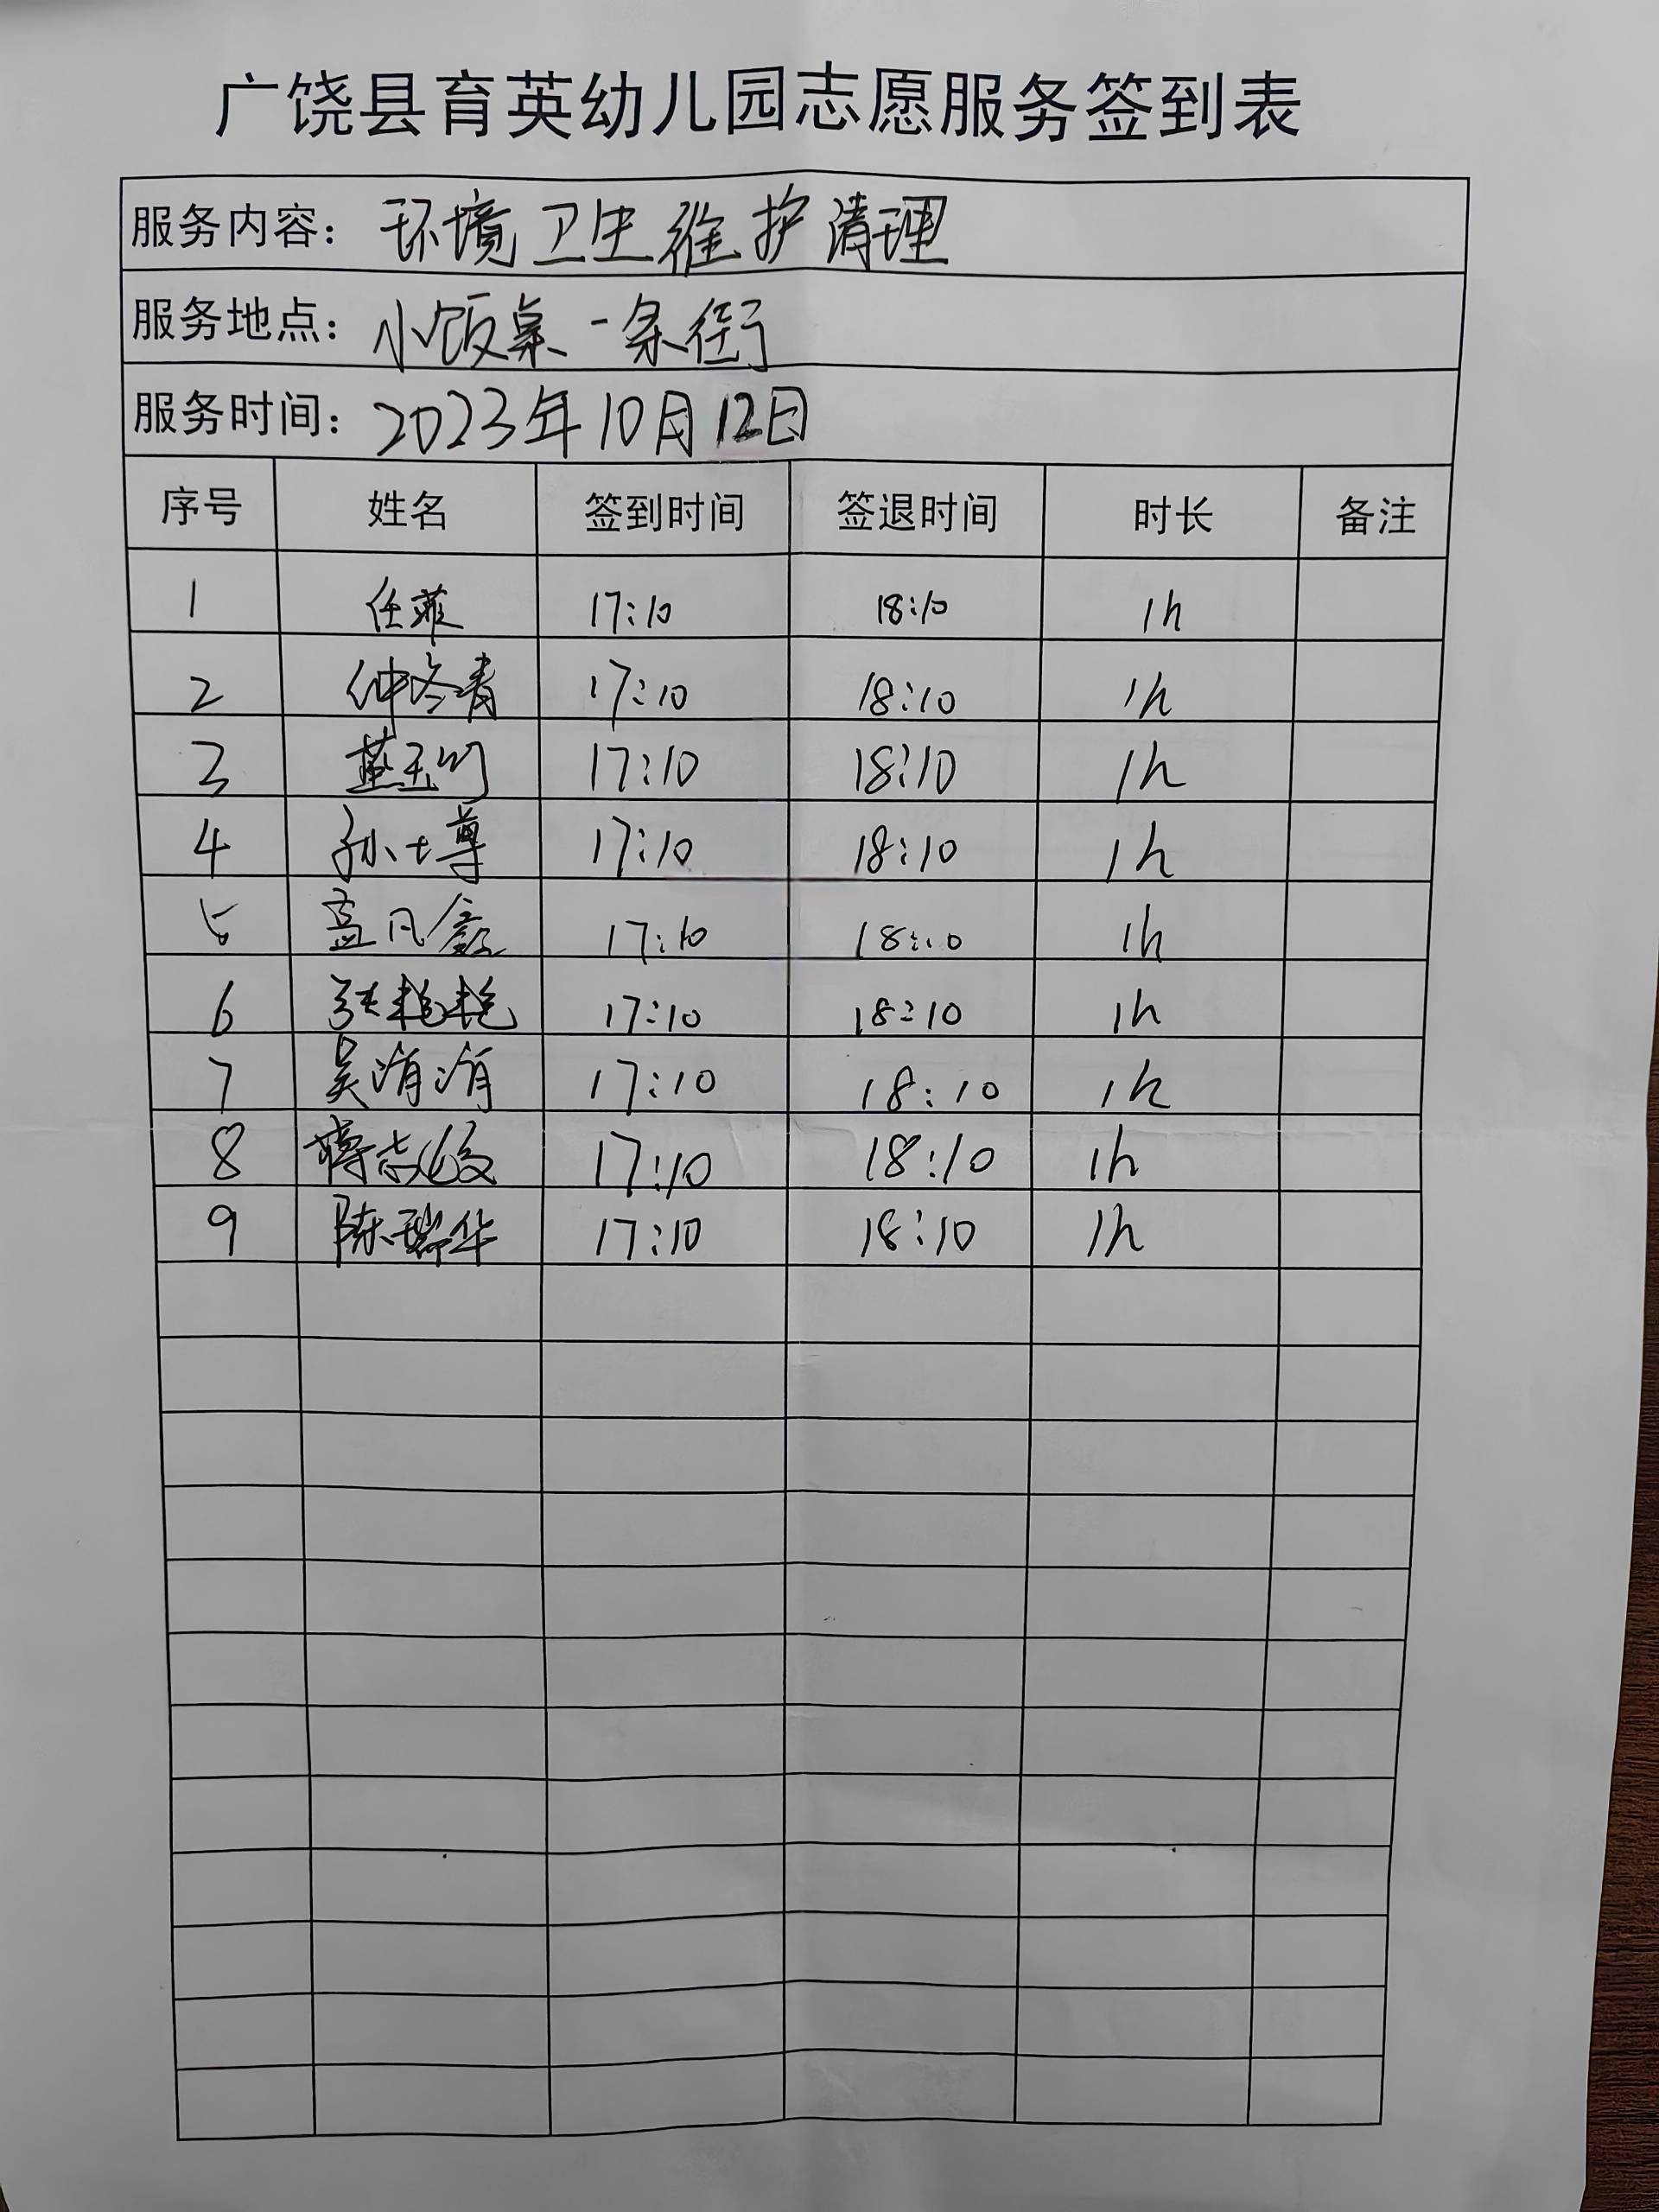 广饶县育英幼儿园志愿服务签到表
服务内容：环境卫生维护清理
服务地点：小饭桌一条街
服务时间：2023年10月12日
序号 姓名 签到时间 签退时间 时长 备注
1 任菲 17:10 18:10 1h
2 仲冬青 17:10 18:10 1h
3 17:10 18:10 1h
4 17:10 18:10 1h
5 孟凡鑫 17:10 18:10 1h
6 张艳艳 17:10 18:10 1h
7 吴涓涓 17:10 18:10 1h
8 17:10 18:10 1h
9 陈瑞华 17:10 18:10 1h